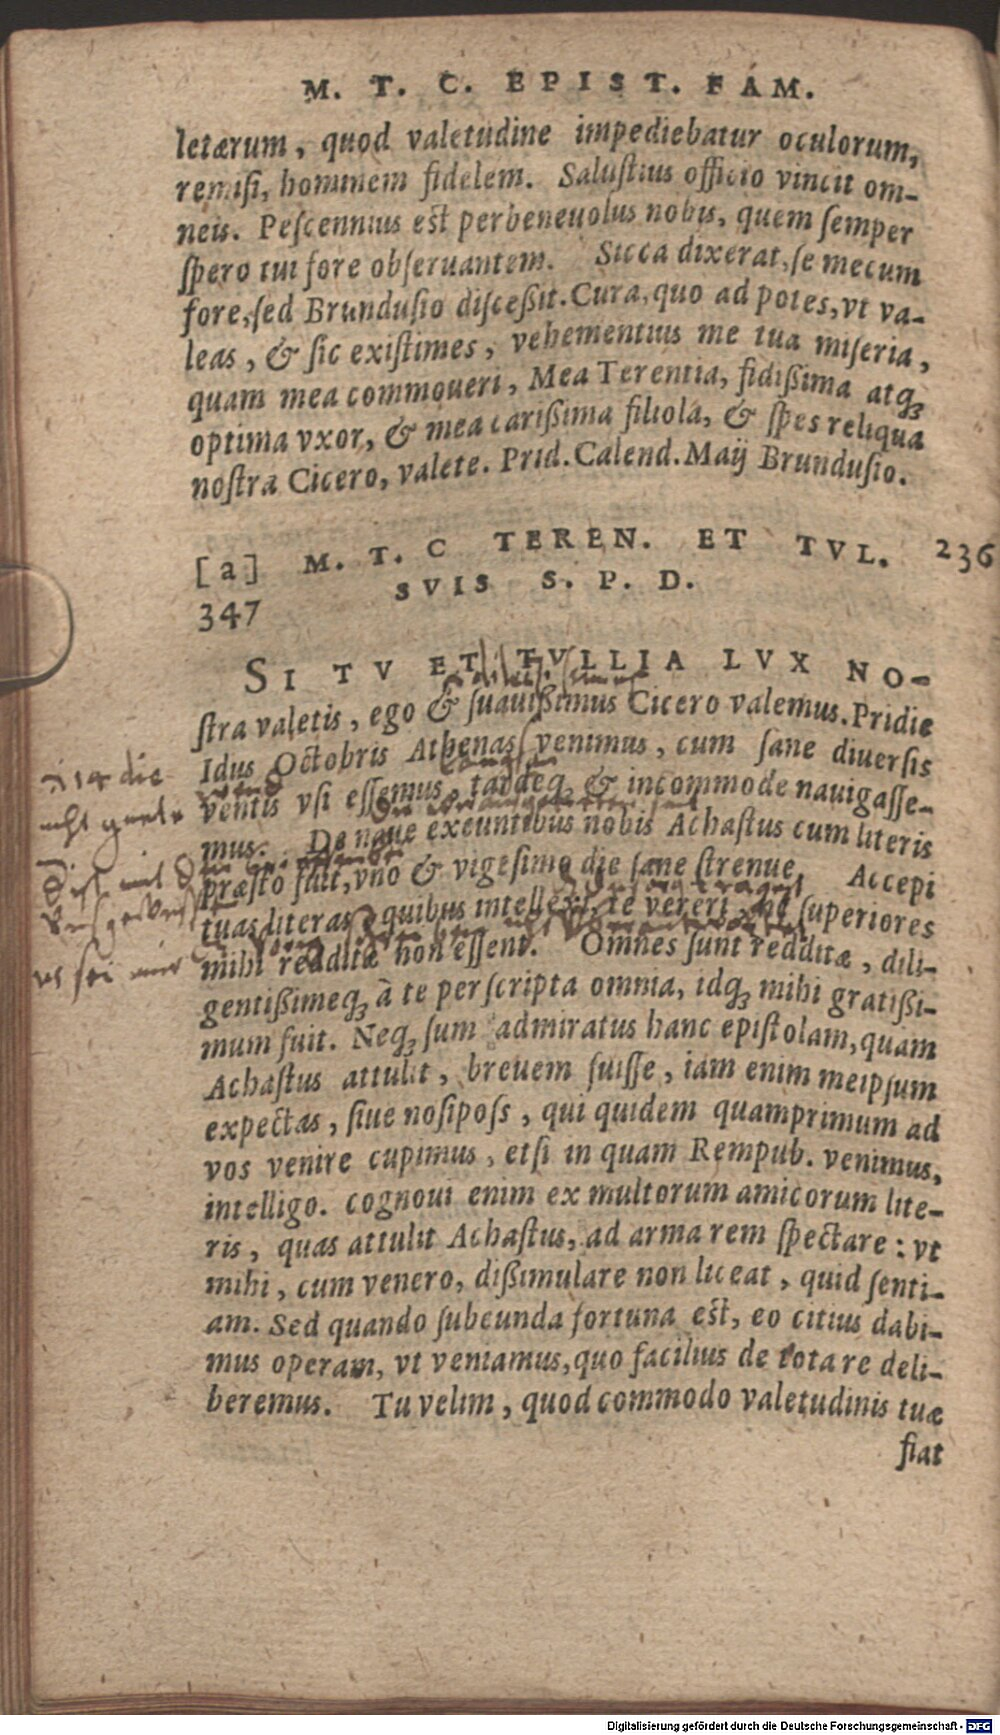 M. T. C. EPIST. FAM.
letærum, quod valetudine impediebatur oculorum,
remisi, hominem fidelem. Salustius officio vincit om-
neis. Pescennius est perbeneuolus nobis, quem semper
spero tui fore obseruantem. Sicca dixerat, se mecum
fore, sed Brundusio discessit. Cura, quo ad potes, vt va-
leas, & sic existimes, vehementius me tua miseria,
quam mea commoueri, Mea Terentia, fidissima atq;
optima vxor, & mea carissima filiola, & spes reliqua
nostra Cicero, valete. Prid. Calend. Maij Brundusio.
[a] M. T. C TEREN. ET TVL. 236
347 SVIS S. P. D.
SI TV ET TVLLIA LVX NO-
stra valetis, ego & suauissimus Cicero valemus. Pridie
Idus Octobris Athenas venimus, cum sane diuersis
ventis vsi essemus, tardeq; & incommode nauigasse-
mus. De naue exeuntibus nobis Achastus cum literis
præsto fuit, vno & vigesimo die sane strenue, Accepi
tuas literas, quibus intellexi, te vereri, ne superiores
mihi redditæ non essent. Omnes sunt redditæ, dili-
gentissimeq; à te perscripta omnia, idq; mihi gratissi-
mum fuit. Neq; sum admiratus hanc epistolam, quam
Achastus attulit, breuem fuisse, iam enim meipsum
expectas, siue nosiposs, qui quidem quamprimum ad
vos venire cupimus, etsi in quam Rempub. venimus,
intelligo. cognoui enim ex multorum amicorum lite-
ris, quas attulit Achastus, ad arma rem spectare: vt
mihi, cum venero, dissimulare non liceat, quid senti-
am. Sed quando subeunda fortuna est, eo citius dabi-
mus operam, vt veniamus, quo facilius de tota re deli-
beremus. Tu velim, quod commodo valetudinis tuæ
fiat
Digitalisierung gefördert durch die Deutsche Forschungsgemeinschaft - DFG